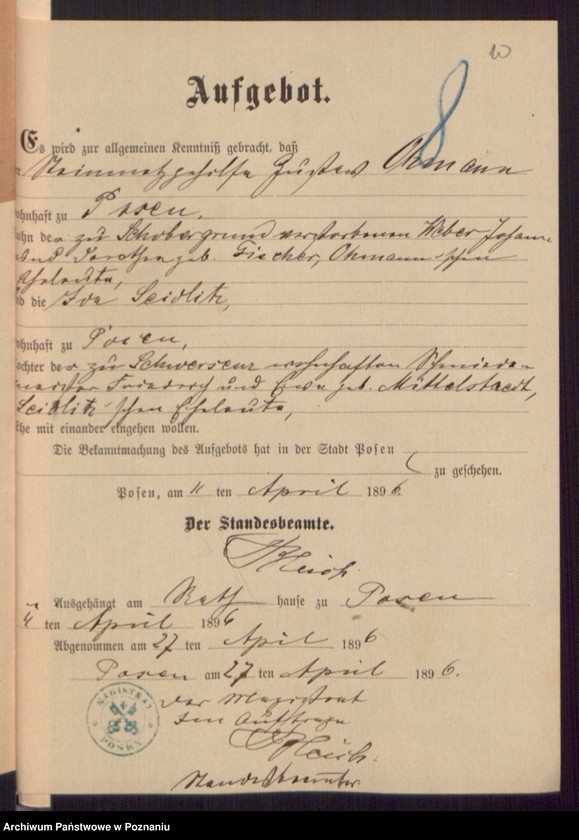 10
8
Aufgebot.
Es wird zur allgemeinen Kenntniß gebracht, daß
Steinmetzgehilfe Gustav Ohmann
ohnhaft zu Posen,
ohn der zu Schobergrund verstorbenen Weber Johann
und Dorothea geb. Fischer, Ohmann'schen
Eheleute,
d die Ida Seidlitz,
ohnhaft zu Posen,
ochter der zu Schwersenz wohnhaften Schmiede-
meister Friedrich und Eva geb. Mittelstaedt,
Seidlitz'schen Eheleute,
he mit einander eingehen wollen.
Die Bekanntmachung des Aufgebots hat in der Stadt Posen
zu geschehen.
Posen, am 11 ten April 1896.
Der Standesbeamte.
Ausgehängt am Rath hause zu Posen
11 ten April 1896
Abgenommen am 27 ten April 1896
Posen am 27 ten April 1896.
Der Magistrat
Im Auftrage
Standesbeamter
MAGISTRAT
POSEN
Archiwum Państwowe w Poznaniu